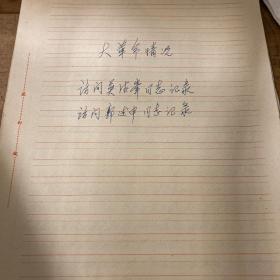 大革命情况
访问吴法宪同志记录
访问郭述申同志记录